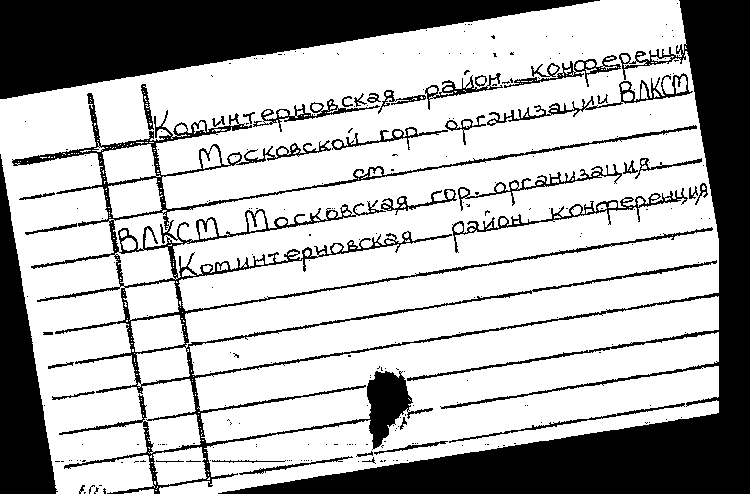 Коминтерновская район. конференция
Московской гор. организации ВЛКСМ
см.
ВЛКСМ. Московская гор. организация.
Коминтерновская район. конференция